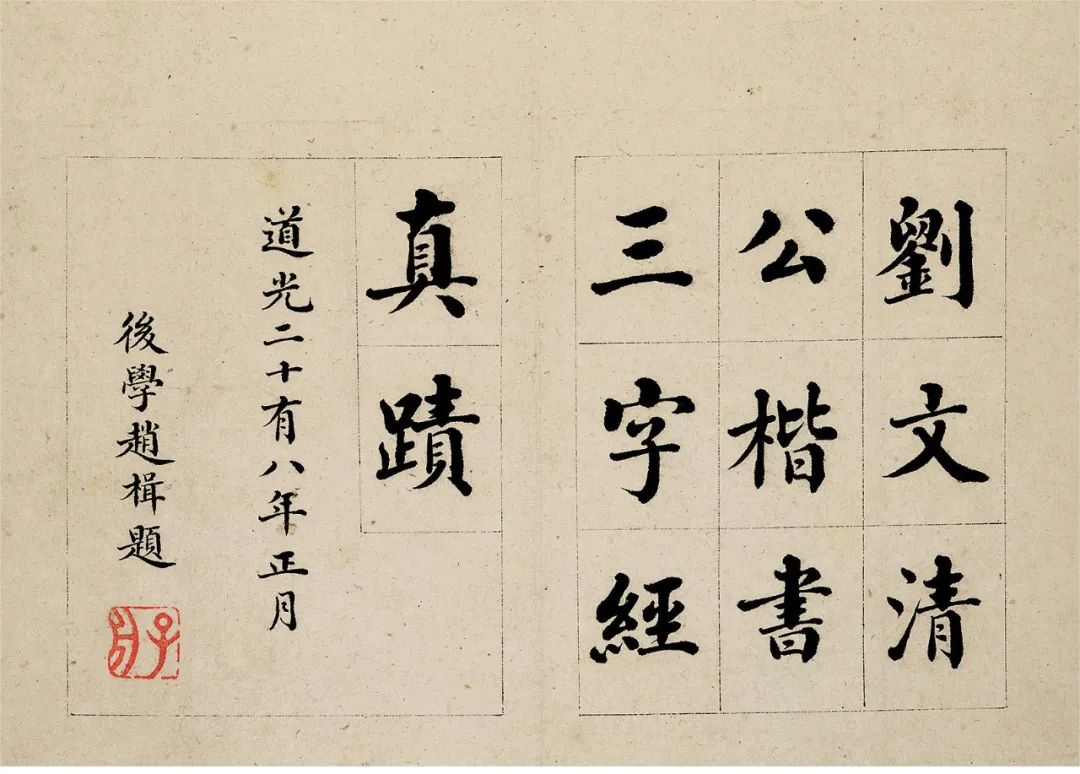 劉文清
公楷書
三字經
真蹟
道光二十有八年正月
後學趙楫題